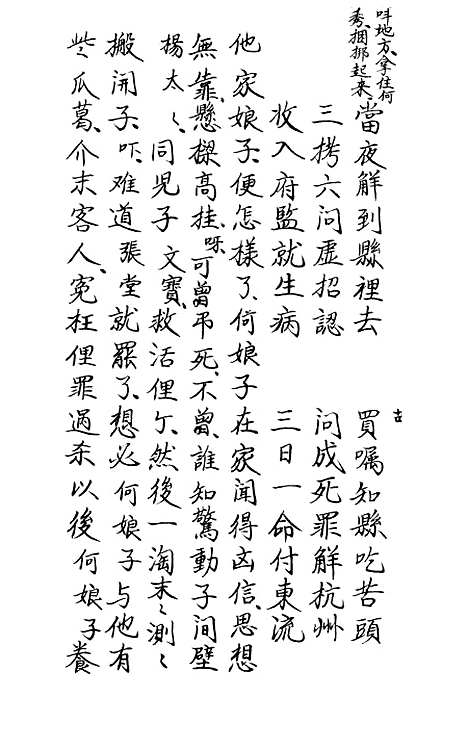 吽地方、拿住何
秀、捆挷起来、當夜解到縣裡去　買嘱知縣吃苦頭
三拷六问虚招認　问成死罪解杭州
收入府監就生病　三日一命付東流
他家娘子、便怎樣了、何娘子在家闻得凶信、思想
無靠、懸樑高挂、呀、可曾吊死、不曾、誰知驚動子间壁
楊太〻、同児子文寳、救活俚亇、然後一淘末〻測〻
搬開子、吓、难道張堂就罷了、想必何娘子与他有
些瓜葛、介末客人、寃枉俚罪過杀以後何娘子養
古